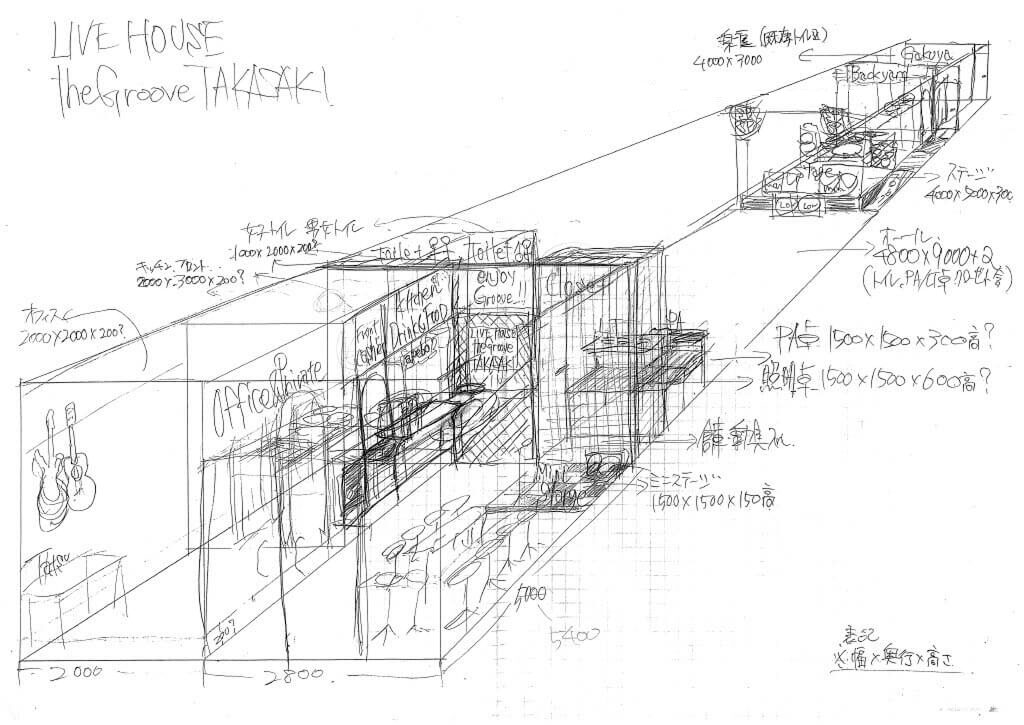 LIVE HOUSE
the Groove TAKASAKI
楽屋(既存トイレ)
4000×3000
Gakuya
Backyard
Stage
ステージ
4000×3000×300
Low Low
ホール
4800×9000+2
(トイレ,PA/照卓クローゼット含)
女子トイレ 男女トイレ
1000×2000×200?
キッチン,フロント
2000×3000×200?
オフィス
2000×2000×200?
toilet
toilet
enjoy
Groove!!
Closet
Kitchen
Drink&Food
Front
Cashier
LIVE HOUSE
the Groove
TAKASAKI
Office&Private
PA
PA卓 1500×1500×300高?
照明卓 1500×1500×600高?
ミニステージ
1500×1500×150高
Mini
Stage
200?
5000
5400
2000
2800
表記
※幅×奥行×高さ